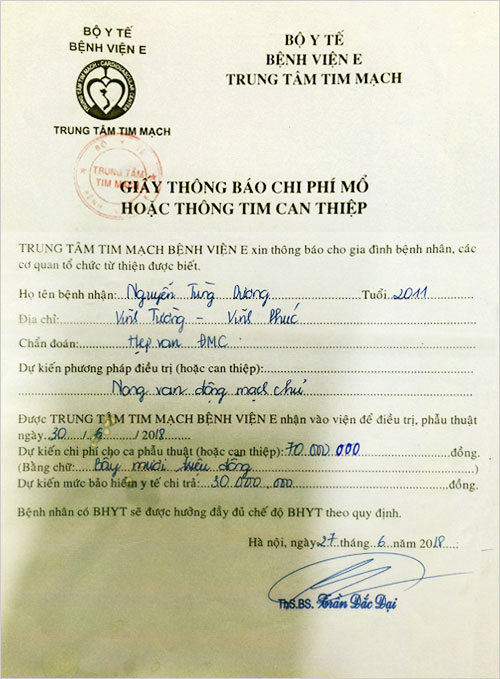 BỘ Y TẾ
BỆNH VIỆN E
TRUNG TÂM TIM MẠCH - CARDIOVASCULAR CENTER
TRUNG TÂM TIM MẠCH
BỘ Y TẾ
BỆNH VIỆN E
TRUNG TÂM TIM MẠCH
BỘ Y TẾ
TRUNG TÂM
TIM MẠCH
GIẤY THÔNG BÁO CHI PHÍ MỔ
HOẶC THÔNG TIM CAN THIỆP
TRUNG TÂM TIM MẠCH BỆNH VIỆN E xin thông báo cho gia đình bệnh nhân, các
cơ quan tổ chức từ thiện được biết.
Họ tên bệnh nhân: Nguyễn Tùng Dương Tuổi 2011
Địa chỉ: Vĩnh Tường - Vĩnh Phúc
Chẩn đoán: Hẹp van ĐMC
Dự kiến phương pháp điều trị (hoặc can thiệp):
Nong van động mạch chủ
Được TRUNG TÂM TIM MẠCH BỆNH VIỆN E nhận vào viện để điều trị, phẫu thuật
ngày 30 / 6 / 2018
Dự kiến chi phí cho ca phẫu thuật (hoặc can thiệp): 70.000.000 đồng.
(Bằng chữ: Bảy mươi triệu đồng)
Dự kiến mức bảo hiểm y tế chi trả: 30.000.000 đồng.
Bệnh nhân có BHYT sẽ được hưởng đầy đủ chế độ BHYT theo quy định.
Hà nội, ngày 27 tháng 6 năm 2018
ThS.BS. Trần Đắc Đại